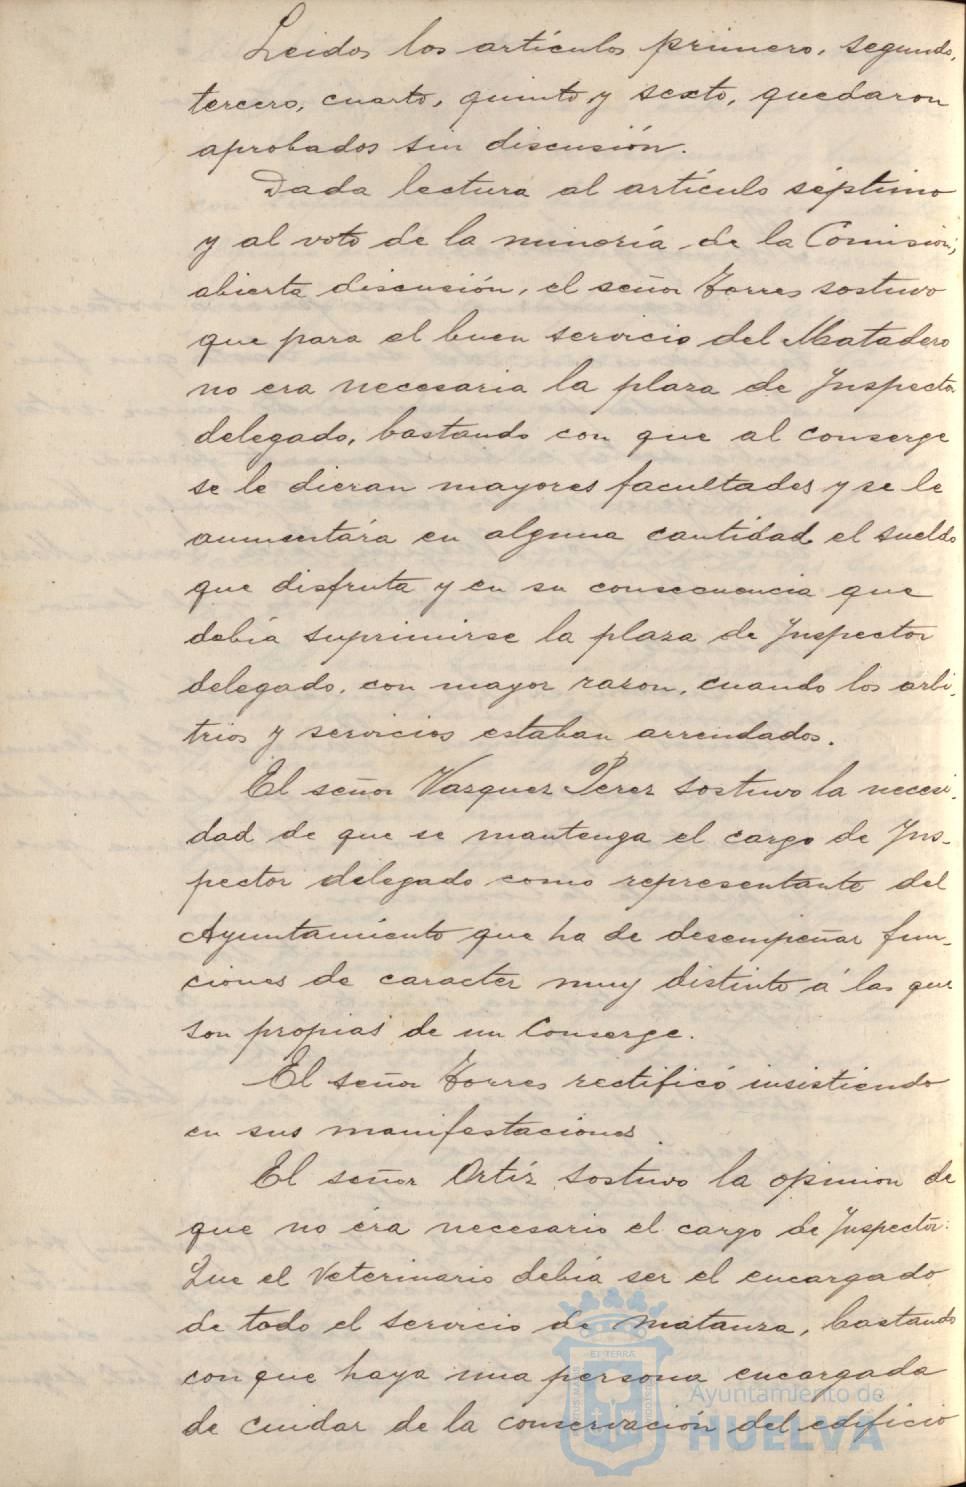 Leidos los artículos primero, segundo,
tercero, cuarto, quinto y sexto, quedaron
aprobados sin discusión.
Dada lectura al artículo séptimo
y al voto de la minoría de la Comisión,
abierta discusión, el señor Torres sostuvo
que para el buen servicio del Matadero
no era necesaria la plaza de Inspector
delegado, bastando con que al conserge
se le dieran mayores facultades y se le
aumentára en alguna cantidad el sueldo
que disfruta y en su consecuencia que
debía suprimirse la plaza de Inspector
delegado, con mayor razon, cuando los arbi-
trios y servicios estaban arrendados.
El señor Vazquez Perez sostuvo la necesi-
dad de que se mantenga el cargo de Ins-
pector delegado como representante del
Ayuntamiento que ha de desempeñar fun-
ciones de caracter muy distinto á las que
son propias de un Conserge.
El señor Torres rectificó insistiendo
en sus manifestaciones
El señor Ortíz sostuvo la opinion de
que no éra necesario el cargo de Inspector:
Que el Veterinario debía ser el encargado
de todo el servicio de matanza, bastando
con que haya una persona encargada
de cuidar de la conservación del edificio
Ayuntamiento de
HUELVA